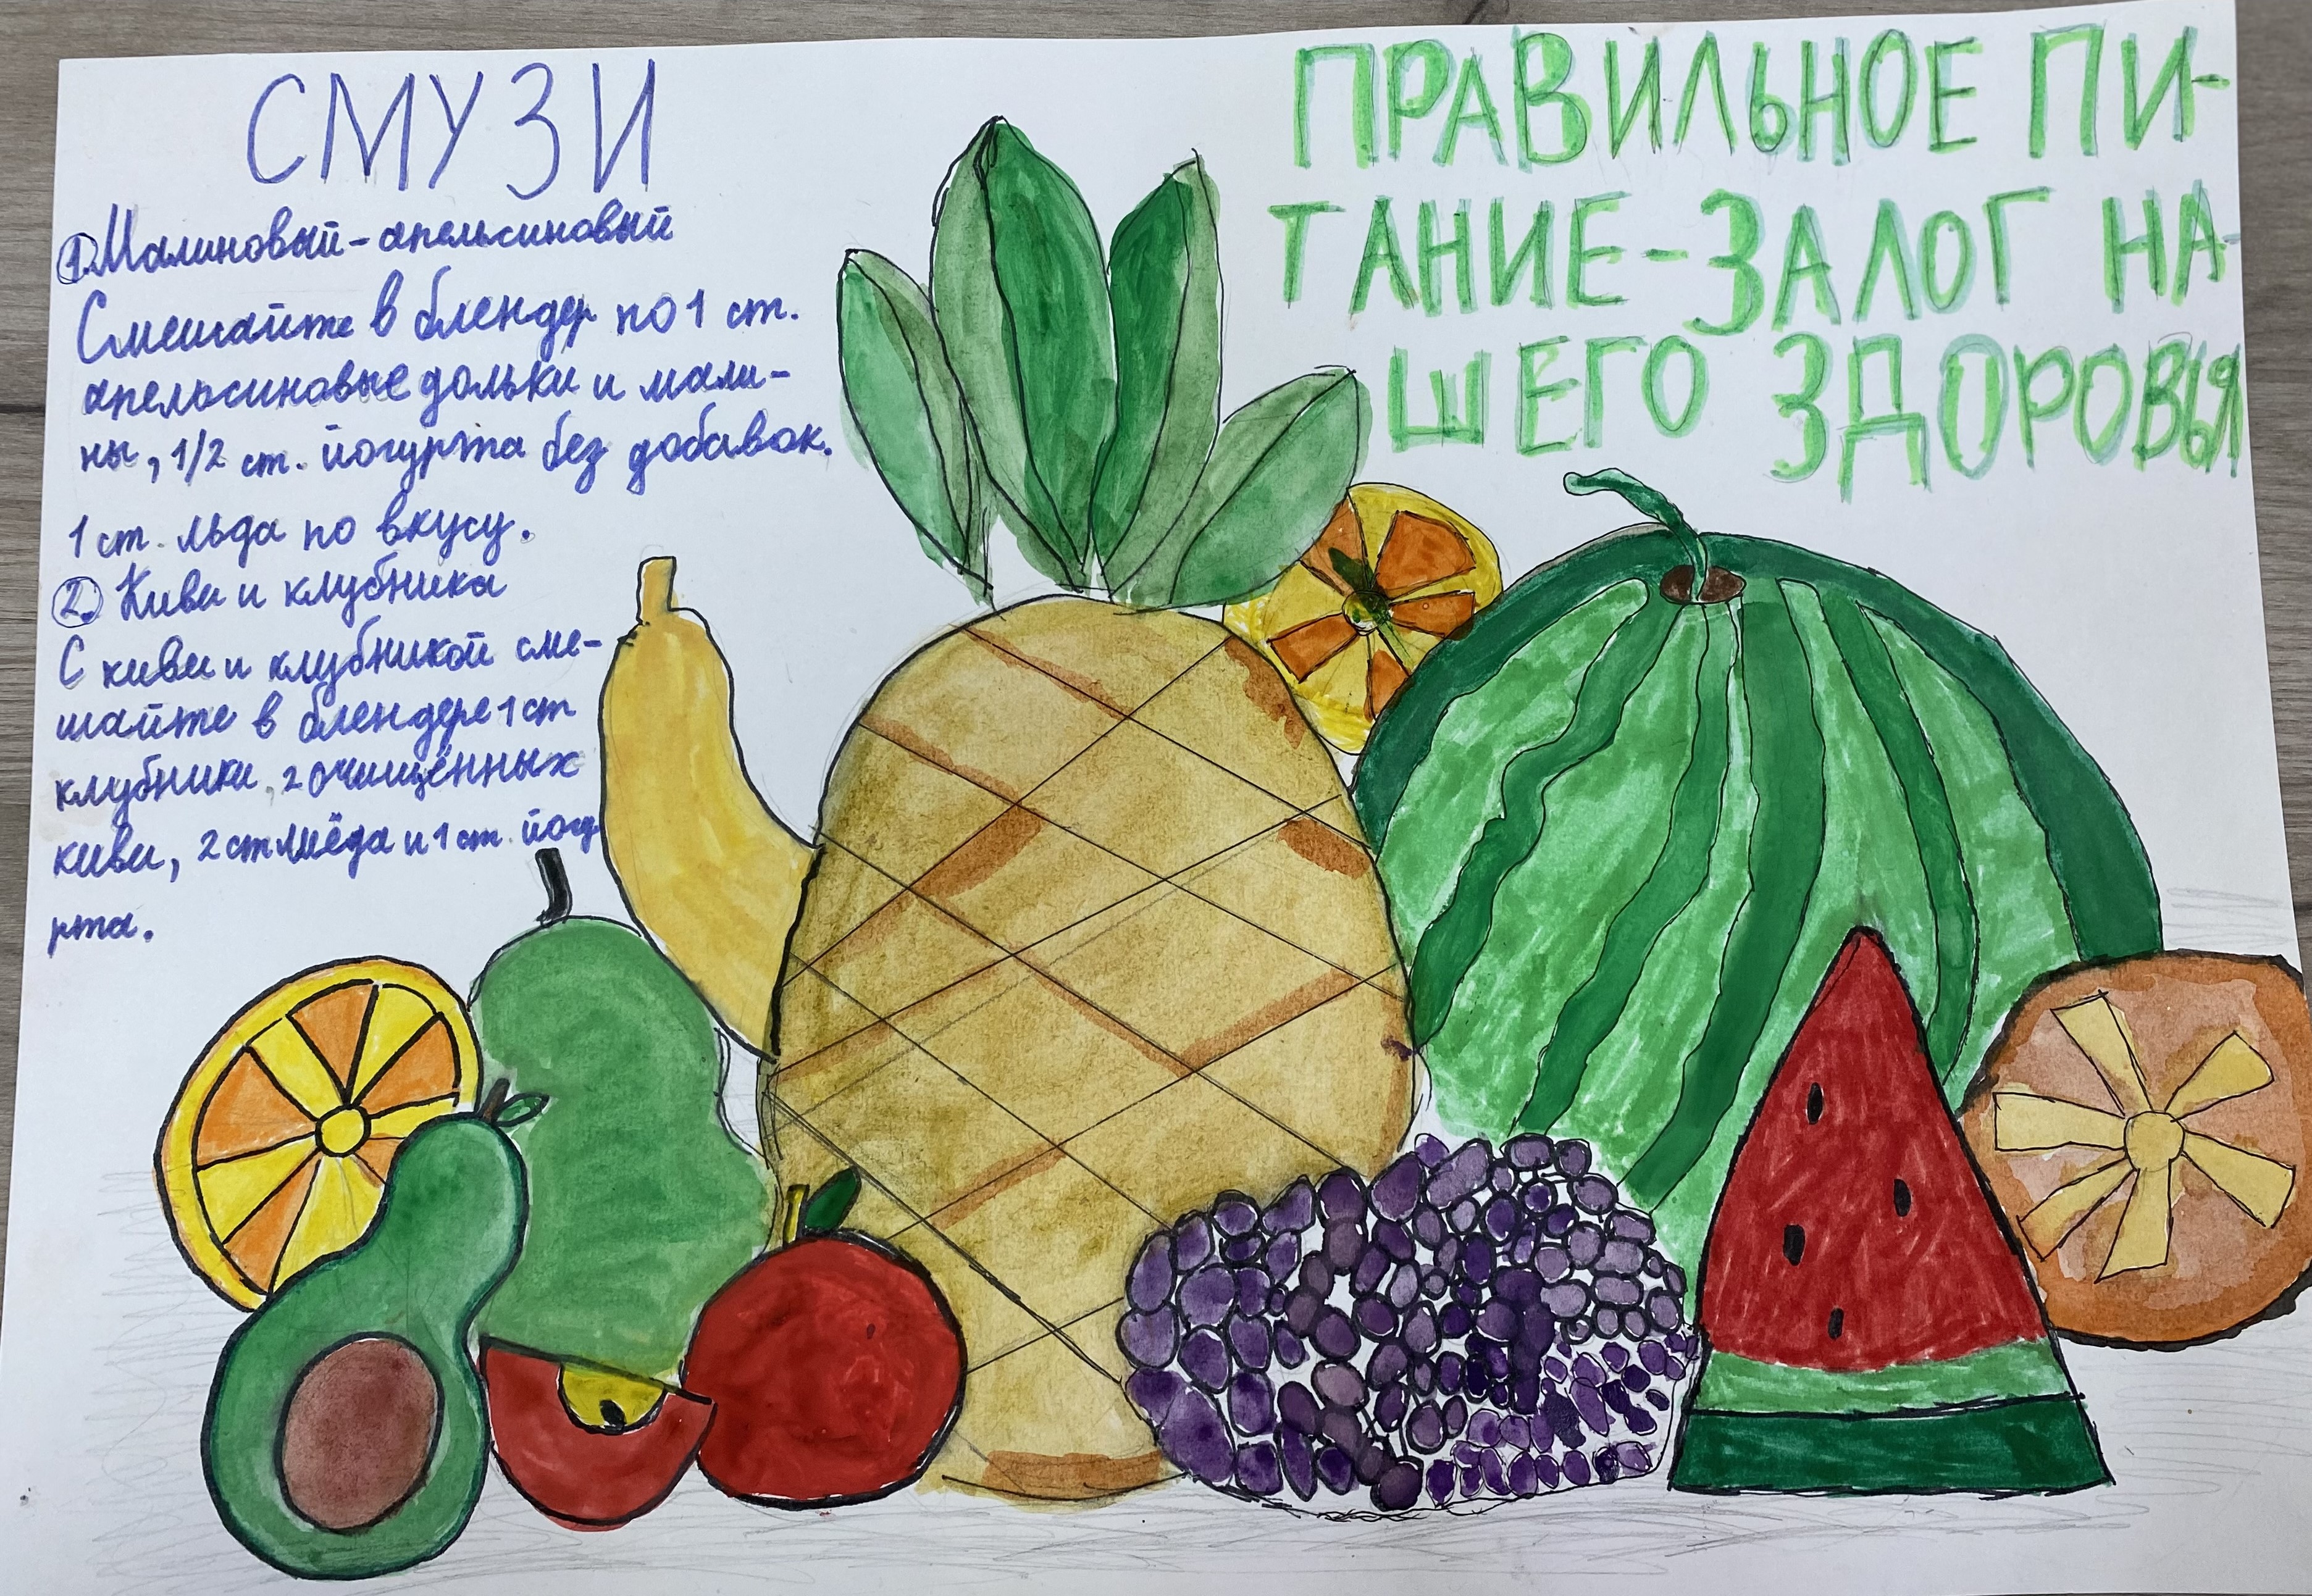 СМУЗИ
1. Малиновый-апельсиновый
Смешайте в блендер по 1 ст.
апельсиновые дольки и мали-
ны, 1/2 ст. йогурта без добавок.
1 ст. льда по вкусу.
2. Киви и клубника
С киви и клубникой сме-
шайте в блендере 1 ст
клубники, 2 очищенных
киви, 2 ст мёда и 1 ст. йогу
рта.
ПРАВИЛЬНОЕ ПИ-
ТАНИЕ-ЗАЛОГ НА-
ШЕГО ЗДОРОВЬЯ